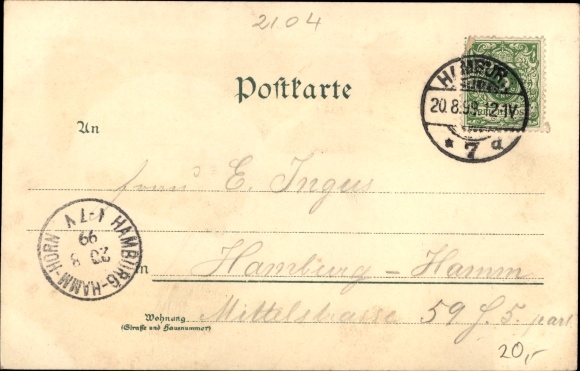 2104
Postkarte
HAMBURG
20.8.99. 12-1V
* 7 d
An
Frau E. Ingus
HAMBURG-HAMM-HORN
1-7V
20 8
99
in Hamburg-Hamm
Wohnung
(Straße und Hausnummer)
Mittelstrasse 59 H. 5. part
20,-